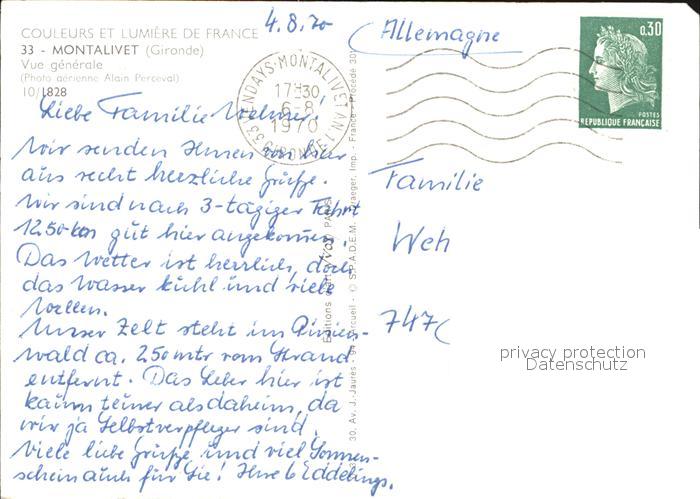 4.8.70
Allemagne
COULEURS ET LUMIÈRE DE FRANCE
33 - MONTALIVET (Gironde)
Vue générale
(Photo aérienne Alain Perceval)
10/1828
33 VENDAYS-MONTALIVET ANNE
17H30
6-8
1970
GIRONDE
0,30
POSTES
REPUBLIQUE FRANÇAISE
Liebe Familie
Wir senden Ihnen von hier
aus recht herzliche Grüße.
Wir sind nach 3-tägiger Fahrt
1250 km gut hier angekommen.
Das Wetter ist herrlich, doch
das Wasser kühl und viele
Wellen.
Unser Zelt steht im Pinien-
wald ca. 250 mtr vom Strand
entfernt. Das Leben hier ist
kaum teurer als daheim, da
wir ja Selbstverpfleger sind.
Viele liebe Grüße und viel Sonnen-
schein auch für Sie! Ihre 6 Eddelings.
30, Av. J.-Jaurès - 94 Arcueil - © S.P.A.D.E.M. Draeger, Imp. - France - Procédé 301
Familie
Weh
747
privacy protection
Datenschutz